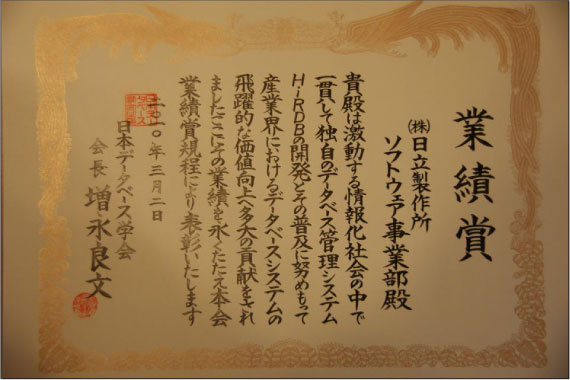 業績賞
㈱日立製作所
ソフトウェア事業部殿
貴殿は激動する情報化社会の中で
一貫して独自のデータベース管理システム
HiRDBの開発とその普及に努めもって
産業界におけるデータベースシステムの
飛躍的な価値向上へ多大の貢献をされ
ましたここにその業績を永くたたえ本会
業績賞規程により表彰いたします
二〇一〇年三月二日
日本データベース学会
会長 増永良文